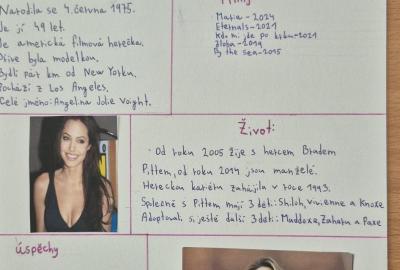 Narodila se 4. června 1975.
Je jí 49 let.
Je americká filmová herečka.
Dříve byla modelkou.
Bydlí pár km od New Yorku.
Pochází z Los Angeles.
Celé jméno: Angelina Jolie Voight.
Filmy
Maria - 2024
Eternals - 2021
Kdo mi jde po krku - 2021
Zloba - 2019
By the sea - 2015
Život:
Od roku 2005 žije s hercem Bradem
Pittem, od roku 2014 jsou manželé.
Hereckou kariéru zahájila v roce 1993.
Společně s Pittem mají 3 děti: Shiloh, Vivienne a Knoxe
Adoptovali si ještě další 3 děti: Maddoxe, Zaharu a Paxe
Úspěchy